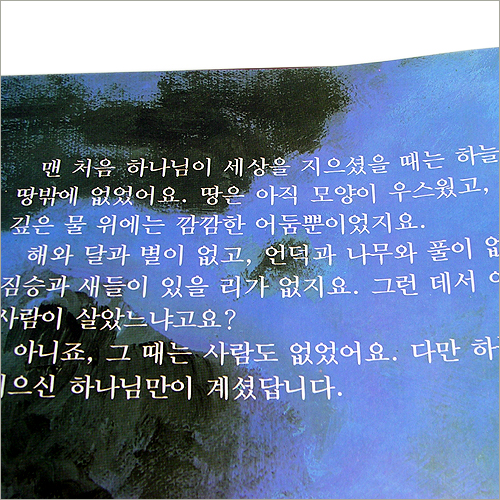 맨 처음 하나님이 세상을 지으셨을 때는 하늘
땅밖에 없었어요. 땅은 아직 모양이 우스웠고,
깊은 물 위에는 깜깜한 어둠뿐이었지요.
해와 달과 별이 없고, 언덕과 나무와 풀이
짐승과 새들이 있을 리가 없지요. 그런 데서
사람이 살았느냐고요?
아니죠, 그 때는 사람도 없었어요. 다만
하나님만이 계셨답니다.